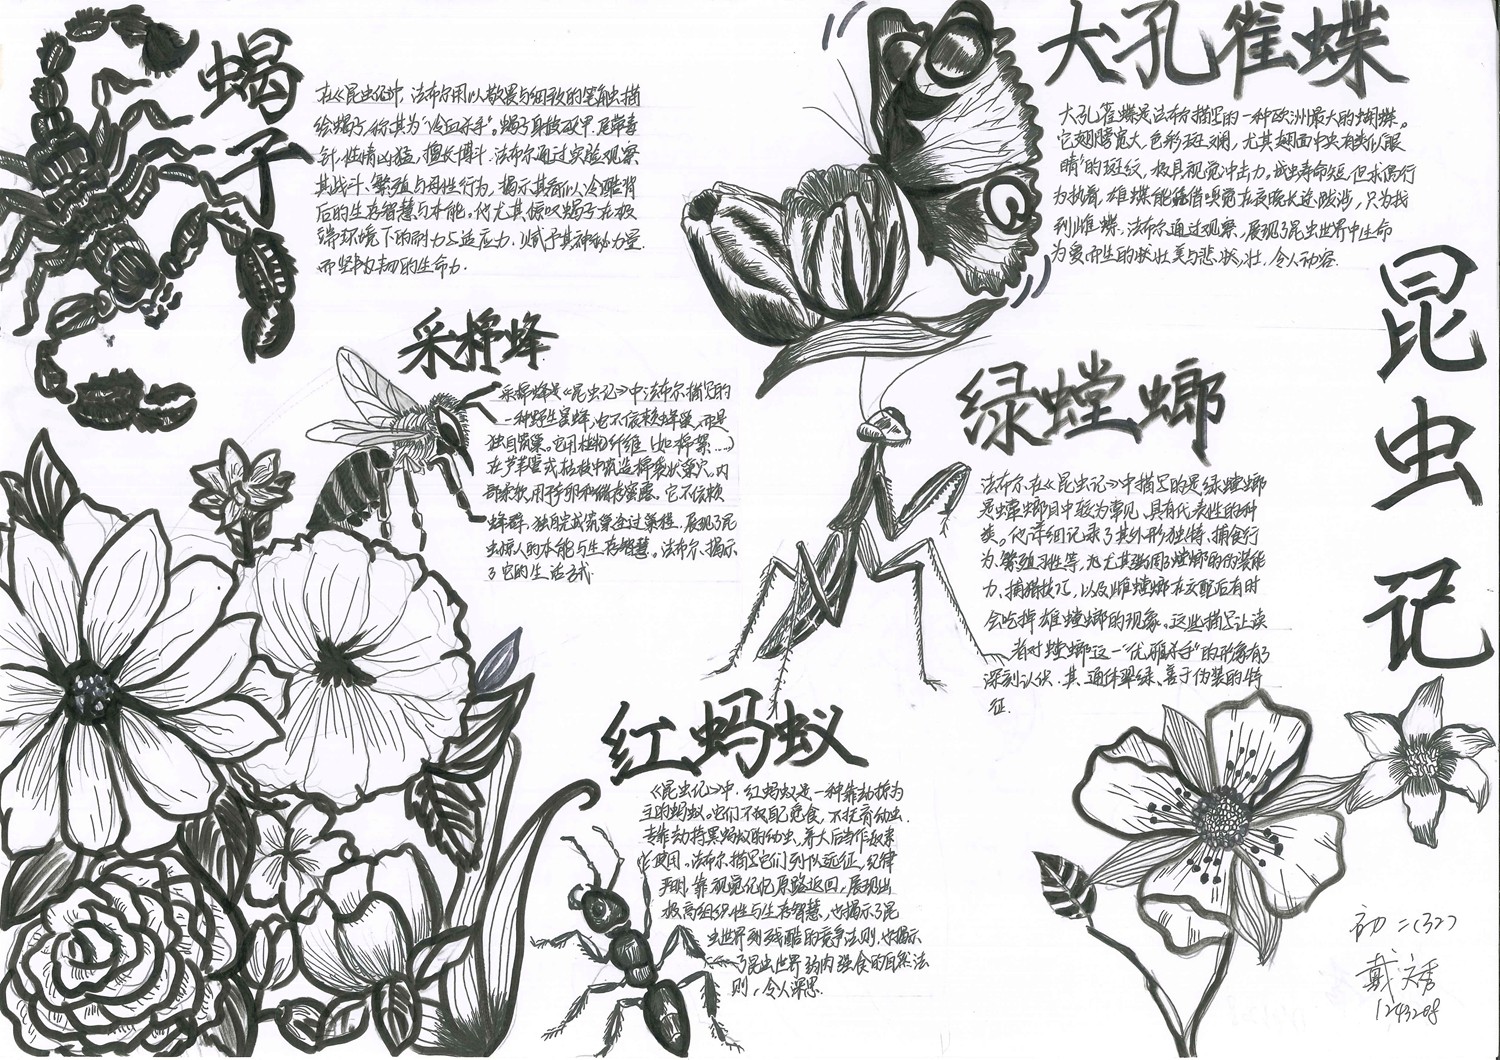 蝎子
在《昆虫记》中，法布尔用以敬畏与细致的笔触描
绘蝎子，称其为“冷血杀手”。蝎子身披硬甲，尾带毒
针，性情凶猛，擅长博斗。法布尔通过实验观察
其战斗、繁殖与母性行为，揭示其看似冷酷背
后的生存智慧与本能。他尤其惊叹蝎子在极
端环境下的耐力与适应力，赋予其神秘力量
而坚韧的生命力.
大孔雀蝶
大孔雀蝶是法布尔描写的一种欧洲最大的蝴蝶。
它翅膀宽大，色彩斑斓，尤其翅面中央有类似“眼
睛”的斑纹，极具视觉冲击力。成虫寿命短，但求偶行
为执着，雄蝶能凭借嗅觉在夜晚长途跋涉，只为找
到雌蝶。法布尔通过观察，展现了昆虫世界中生命
为爱而生的壮美与悲壮，令人动容.
昆虫记
采棉蜂
采棉蜂是《昆虫记》中法布尔描写的
一种野生蜜蜂，它不依赖蜂巢，而是
独自筑巢。它用植物纤维（如棉絮……）
在芦苇管或枯枝中筑造棉袋状巢穴，内
部柔软，用于产卵和储存蜜露。它不依赖
蜂群，独自完成筑巢全过程，展现了昆
虫惊人的本能与生存智慧。法布尔揭示
了它的生活方式.
绿螳螂
法布尔在《昆虫记》中描写的是绿螳螂
是螳螂目中较为常见、具有代表性的种
类。他详细记录了其外形独特、捕食行
为、繁殖习性等，尤其强调了螳螂的伪装能
力、捕猎技巧，以及雌螳螂在交配后有时
会吃掉雄螳螂的现象。这些描写让读
者对螳螂这一“优雅杀手”的形象有了
深刻认识。其通体翠绿、善于伪装的特
征.
红蚂蚁
《昆虫记》中，红蚂蚁是一种靠劫掠为
主的蚂蚁。它们不会自己觅食，不抚育幼虫，
专靠劫掠黑蚂蚁的幼虫，养大后当作奴隶
使用。法布尔描写它们列队远征，纪律
严明，靠视觉记忆原路返回，展现出
极高组织性与生存智慧，也揭示了昆
虫世界到残酷的竞争法则，也揭示
了昆虫世界弱肉强食的自然法
则，令人深思.
初二(32)
戴文秀
1243208